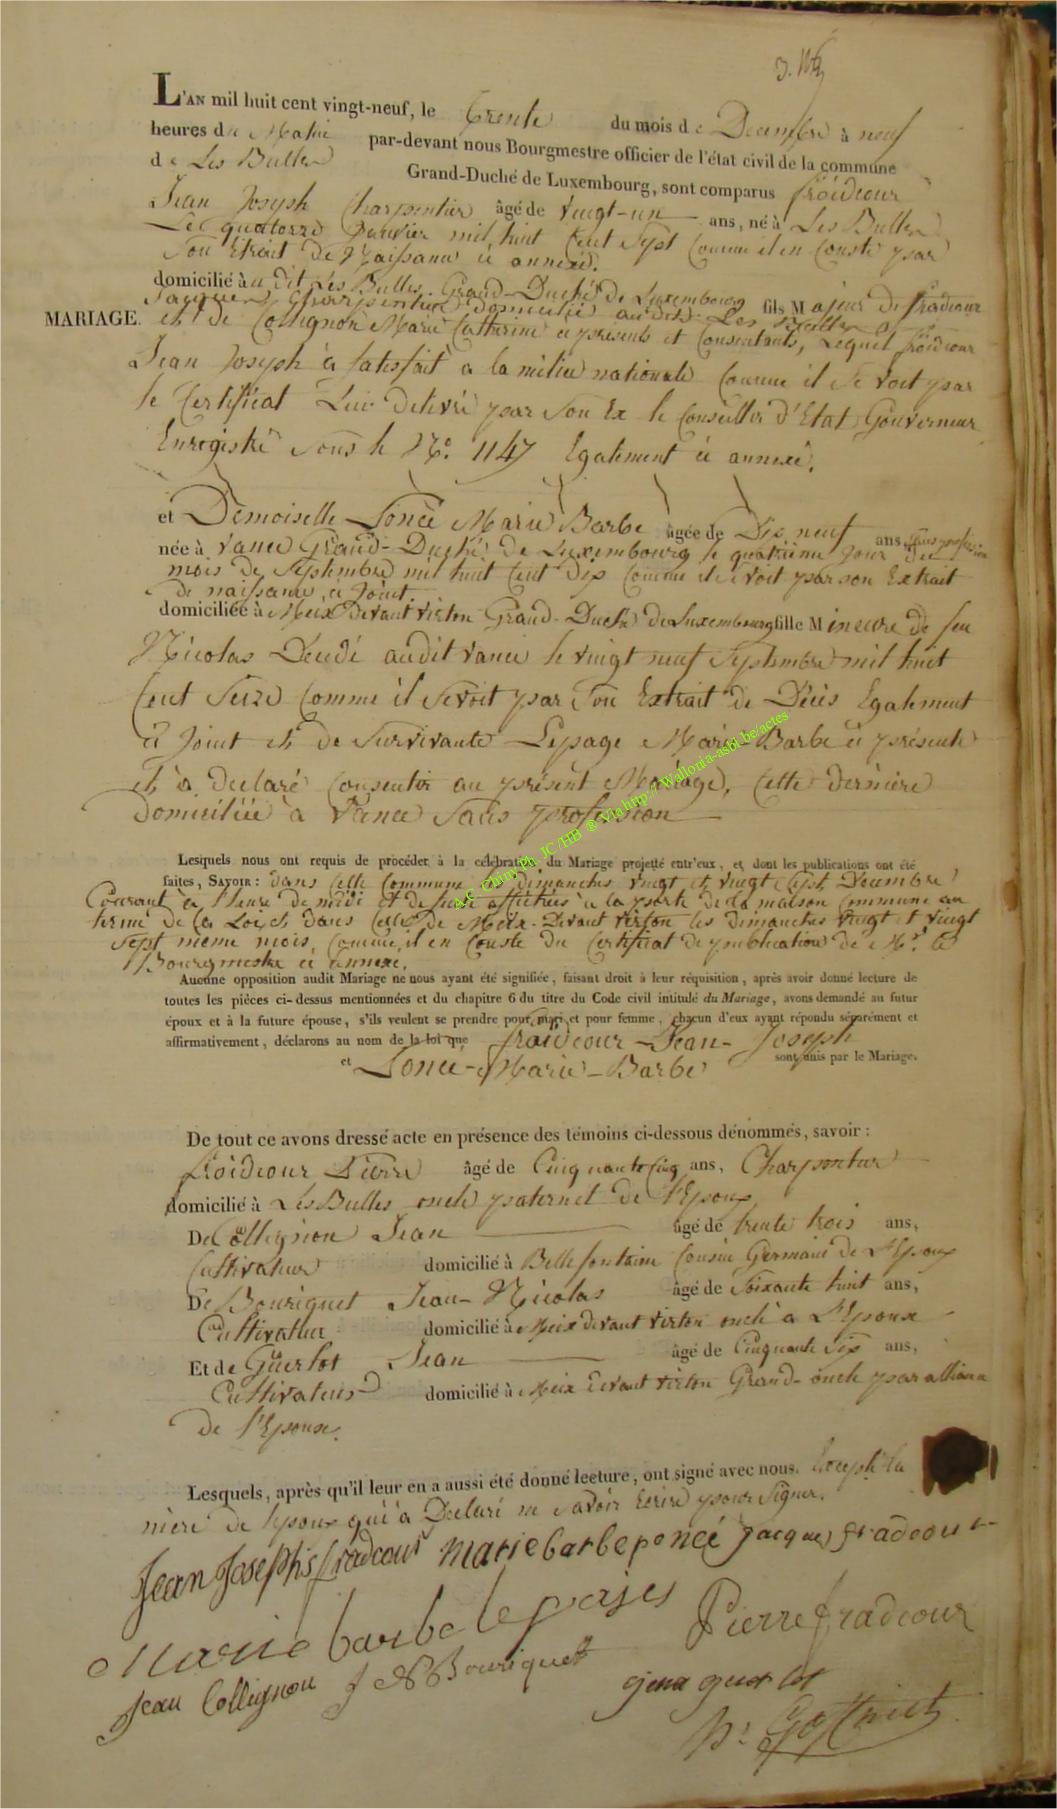 L'AN mil huit cent vingt-neuf, le trente du mois de Decembre à neuf
heures de Matin par-devant nous Bourgmestre officier de l'état civil de la commune
de Les Bulles Grand-Duché de Luxembourg, sont comparus froidcour
Jean Joseph Charpentier âgé de vingt-un ans, né à Les Bulles
Le quatorze Janvier mil huit Cent Sept Comme il en Conste par
Son Extrait de Naissance ci annexé.
domicilié au dit Les Bulles Grand-Duché de Luxembourg fils Majeur de fradcour
Jacques Charpentier domicilié au dit Les Bulles
MARIAGE. et de Collignon Marie Catherine ci présents et Consentants, Lequel froidcour
Jean Joseph à Satisfait à la milice nationale Comme il se voit par
le Certificat Lui delivré par Son Ex le Conseiller d'Etat Gouverneur
Enregistré Sous le No. 1147 Egalement ci annexé.
et Demoiselle Poncé Marie Barbe âgée de Dix neuf ans Sans profession
née à Vance Grand-Duché de Luxembourg le quatrieme Jour du
mois de Septembre mil huit Cent dix Comme il se voit par son Extrait
de naissance ci Joint.
domiciliée à Meix Devant Virton Grand-Duché de Luxembourg fille Mineure de feu
Nicolas Décédé audit Vance le vingt neuf Septembre mil huit
Cent Seize Comme il Se voit par Son Extrait de Décès Egalement
ci Joint et de Survivante Lepage Marie Barbe ci présente
et à declaré Consentir au présent Mariage, Cette dernière
domiciliée à Vance Sans profession
A.C. Chiny Ph. JC/HB ® Via http://Wallonia-asbl.be/actes
Lesquels nous ont requis de procéder à la célébration du Mariage projetté entr'eux, et dont les publications ont été
faites, SAVOIR : dans Cette Commune les dimanches vingt et vingt Sept Decembre
Courant à l'heure de midi et de suite affichées à la porte de la maison Commune au
terme de la Loi, et dans Celle de Meix-Devant Virton les dimanches vingt et vingt
Sept meme mois, Comme il en Conste du Certificat de publication de Mr. le
Bourgmestre ci annexé.
Aucune opposition audit Mariage ne nous ayant été signifiée, faisant droit à leur réquisition, après avoir donné lecture de
toutes les pièces ci-dessus mentionnées et du chapitre 6 du titre du Code civil intitulé du Mariage, avons demandé au futur
époux et à la future épouse, s'ils veulent se prendre pour mari et pour femme, chacun d'eux ayant répondu séparément et
affirmativement, déclarons au nom de la loi que froidcour-Jean-Joseph
et Poncé-Marie-Barbe sont unis par le Mariage.
De tout ce avons dressé acte en présence des témoins ci-dessous dénommés, savoir :
froidcour Pierre âgé de Cinquante Cinq ans, Charpentier
domicilié à Les Bulles oncle paternel de l'Epoux
De Collignon Jean âgé de trente trois ans,
Cultivateur domicilié à Bellefontaine Cousin Germain de l'Epoux
De Bouriquet Jean-Nicolas âgé de Soixante huit ans,
Cultivateur domicilié à Meix devant Virton oncle à L'Epouse
Et de Guerlot Jean âgé de Cinquante Six ans,
Cultivateur domicilié à Meix devant Virton Grand-oncle par alliance
de l'Epouse.
Lesquels, après qu'il leur en a aussi été donné lecture, ont signé avec nous. Excepté la
mère de lepoux qui à Declaré ne Savoir Ecrire pour Signer.
Jean Joseph fradcour marie barbe poncé Jacques fradcour
Marie barbe lepages Pierre fradcour
Jean Collignon J N Bouriquet
jean guerlot